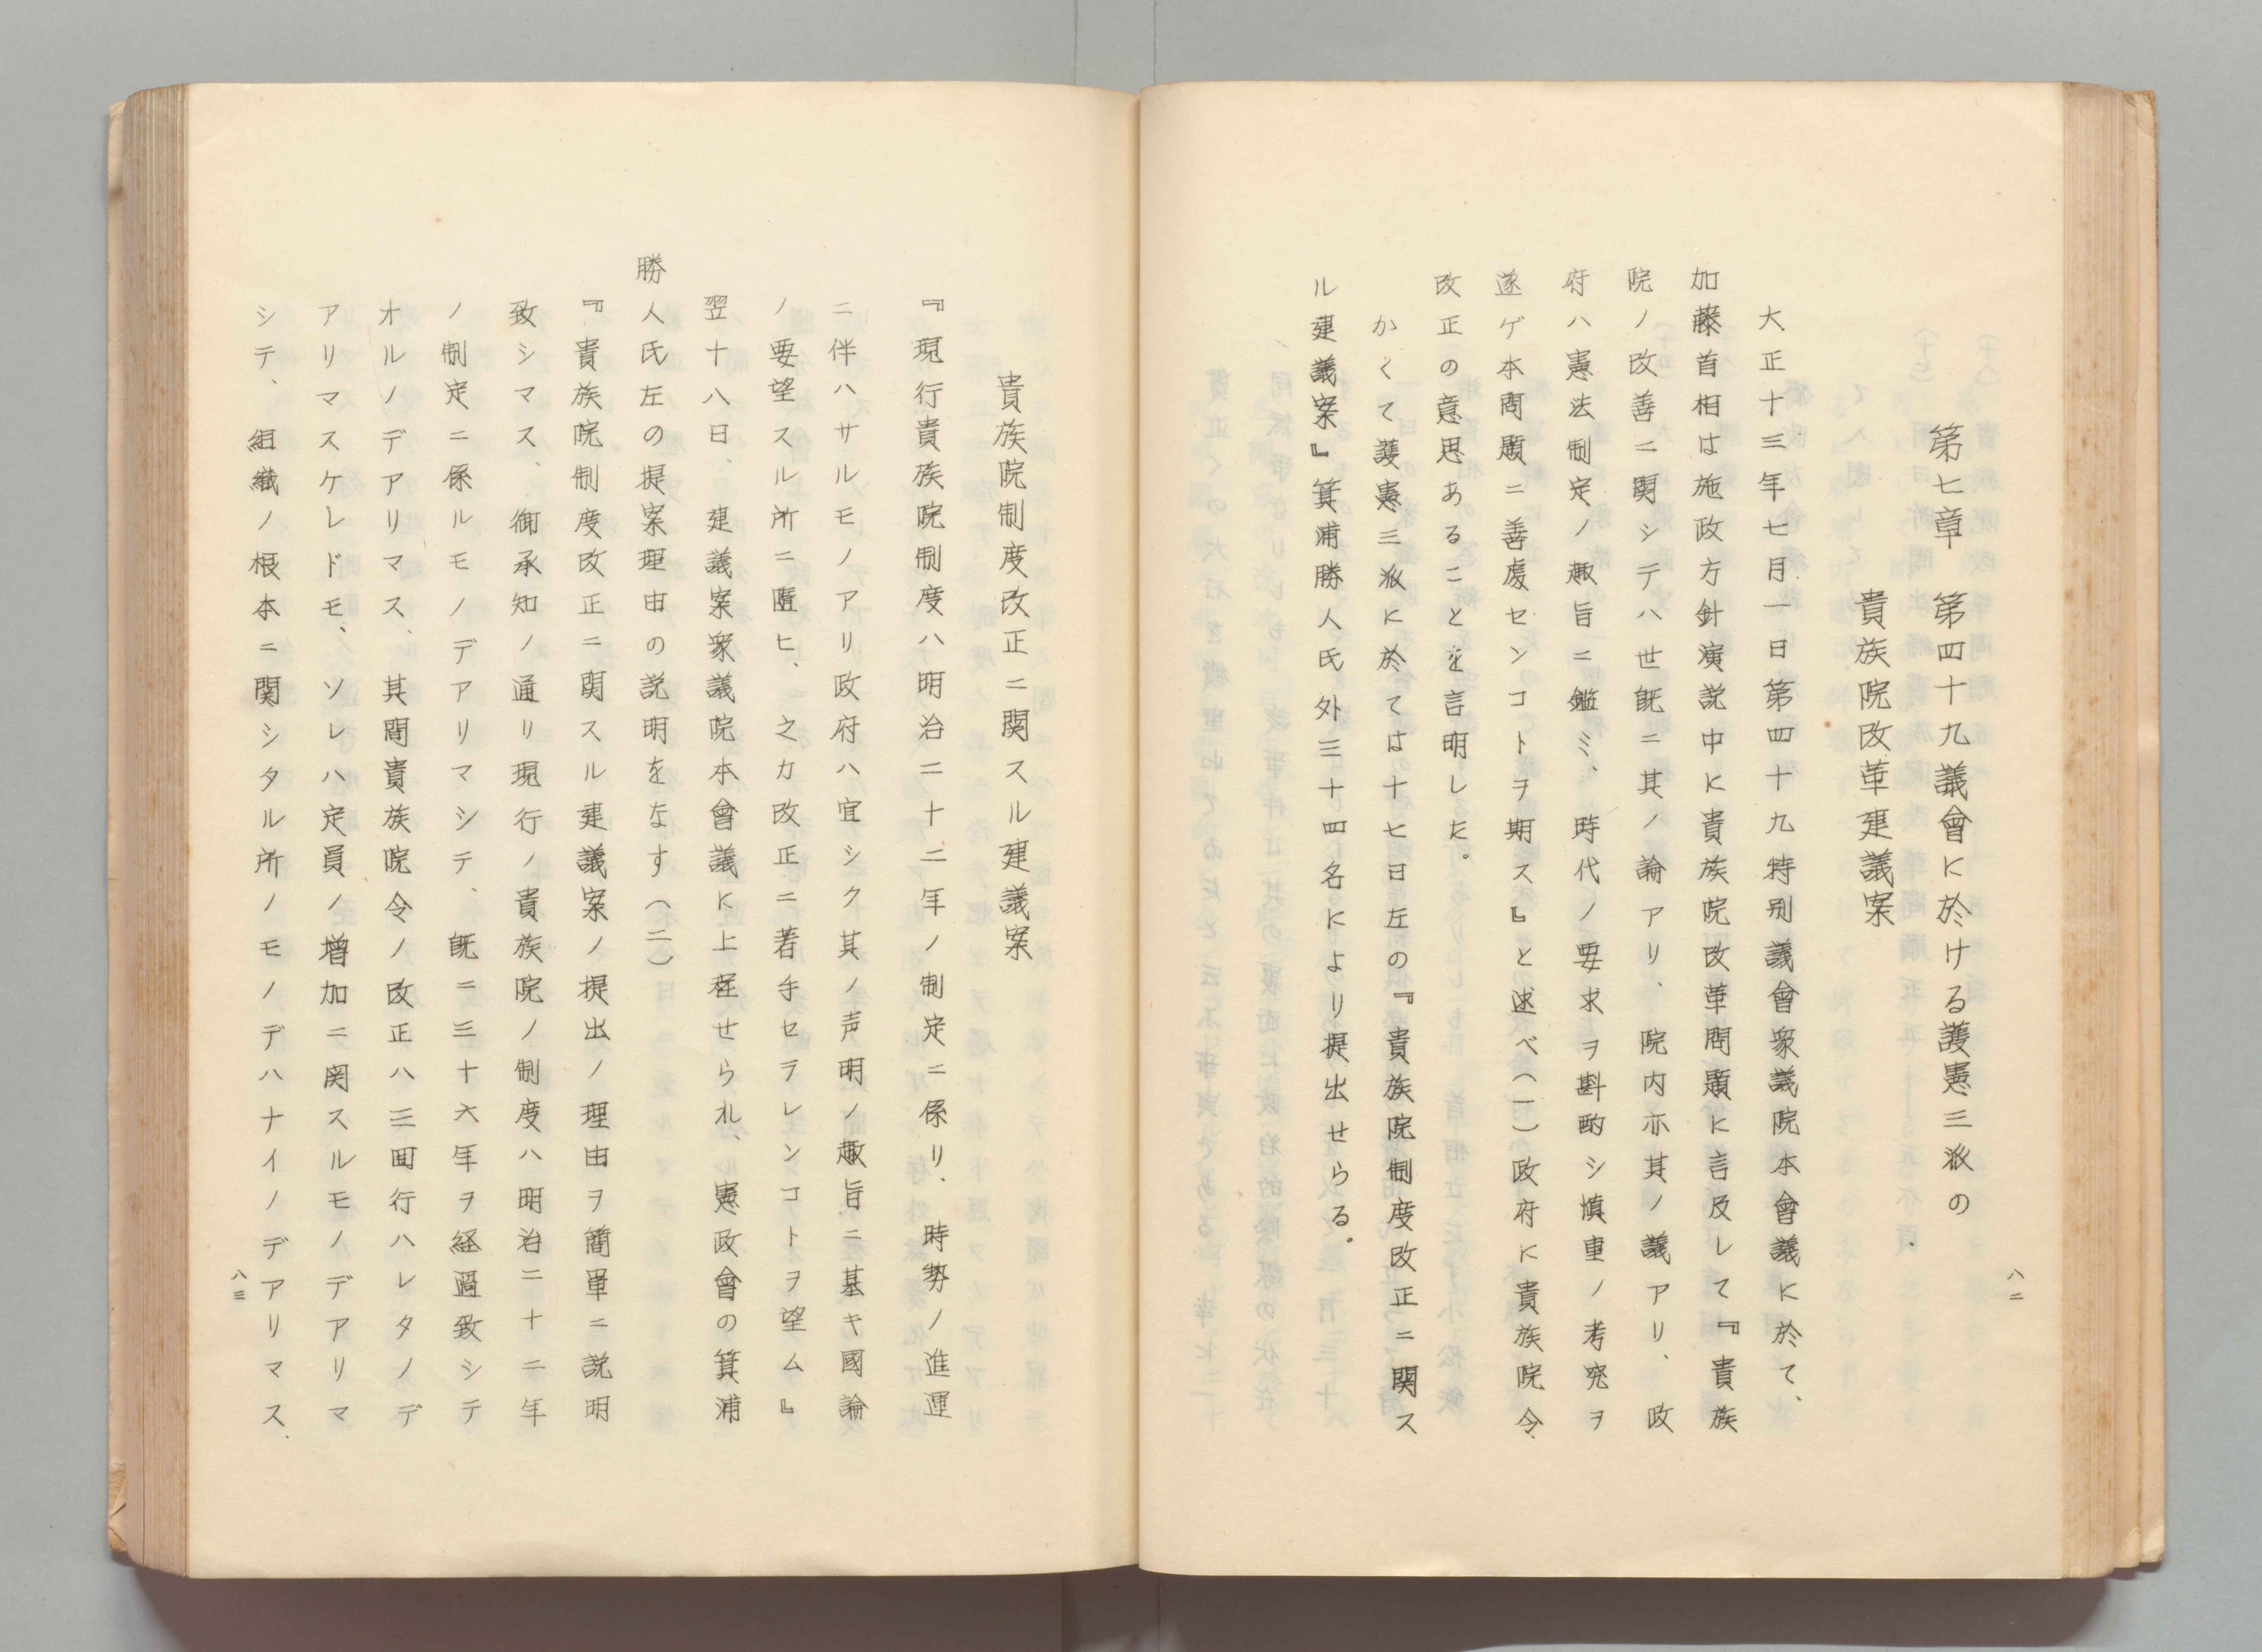 第七章　第四十九議會に於ける護憲三派の
貴族院改革建議案
大正十三年七月一日第四十九特別議會衆議院本會議に於て、
加藤首相は施政方針演説中に貴族院改革問題に言及して『貴族
院ノ改善ニ関シテハ世既ニ其ノ論アリ、院内亦其ノ議アリ、政
府ハ憲法制定ノ趣旨ニ鑑ミ、時代ノ要求ヲ斟酌シ慎重ノ考究ヲ
遂ゲ本問題ニ善處センコトヲ期ス』と述べ（一）政府に貴族院令
改正の意思あることを言明した。
かくて護憲三派に於ては十七日左の『貴族院制度改正ニ関ス
ル建議案』箕浦勝人氏外三十四名により提出せらる。
八二
貴族院制度改正ニ関スル建議案
『現行貴族院制度ハ明治二十二年ノ制定ニ係リ、時勢ノ進運
ニ伴ハサルモノアリ政府ハ宜シク其ノ声明ノ趣旨ニ基キ國論
ノ要望スル所ニ匯ヒ、之カ改正ニ着手セラレンコトヲ望ム』
翌十八日、建議案衆議院本會議に上程せられ、憲政會の箕浦
勝人氏左の提案理由の説明をなす（二）
『貴族院制度改正ニ関スル建議案ノ提出ノ理由ヲ簡單ニ説明
致シマス、御承知ノ通リ現行ノ貴族院ノ制度ハ明治二十二年
ノ制定ニ係ルモノデアリマシテ、既ニ三十六年ヲ経過致シテ
オルノデアリマス、其間貴族院令ノ改正ハ三囬行ハレタノデ
アリマスケレドモ、ソレハ定員ノ増加ニ関スルモノデアリマ
シテ、組織ノ根本ニ関シタル所ノモノデハナイノデアリマス、
八三